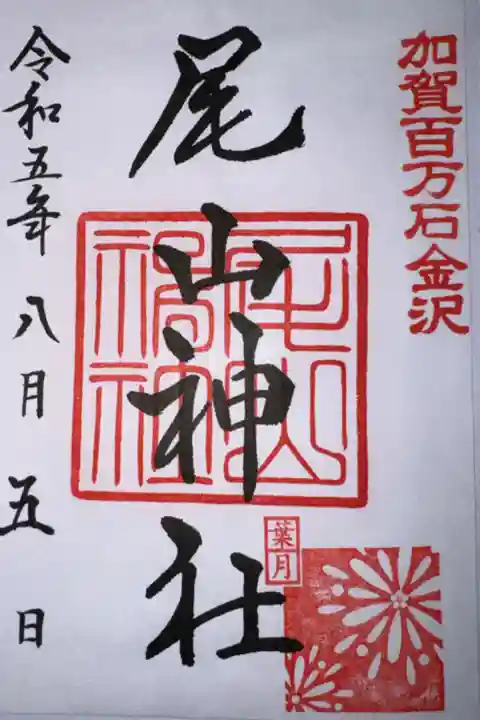 加賀百万石金沢
尾山神社
葉月
令和五年八月五日